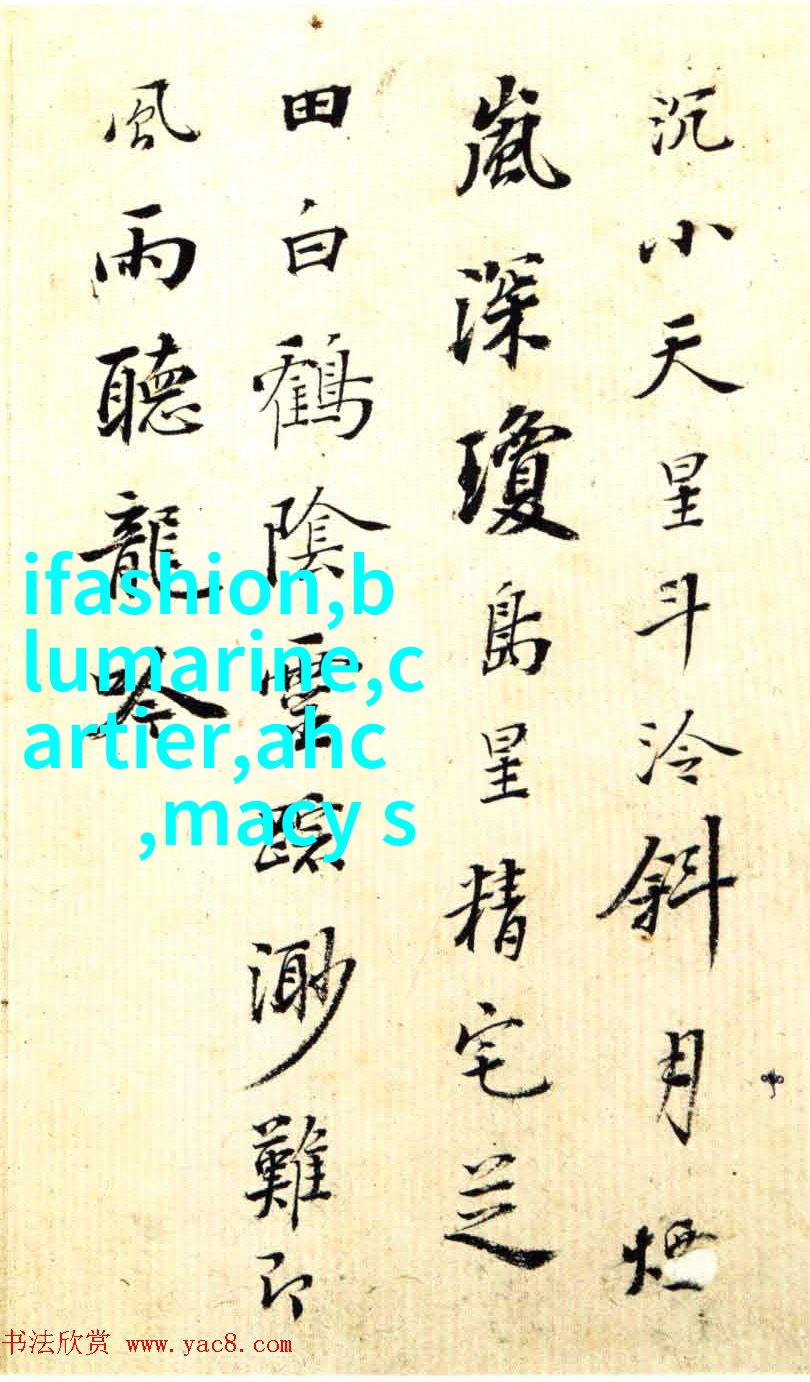 沉小天星斗泠斜月煙
嵐深瓊島星精宅芝
田白鶴陰靈踪渺難即
風雨聽龍吟
ifashion,b
lumarine,c
artier,ahc
,macy s
书法欣赏 www.yac8.com